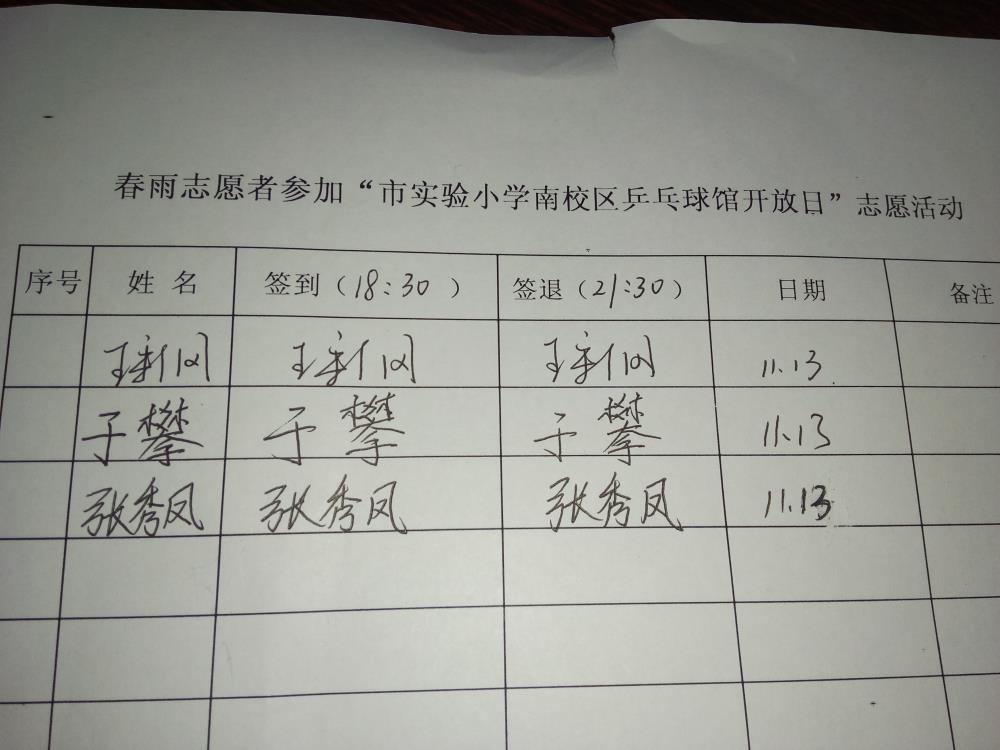 春雨志愿者参加“市实验小学南校区乒乓球馆开放日”志愿活动
序号 姓名 签到（18:30） 签退（21:30） 日期 备注
王新刚 王新刚 王新刚 11.13
于攀 于攀 于攀 11.13
张秀凤 张秀凤 张秀凤 11.13